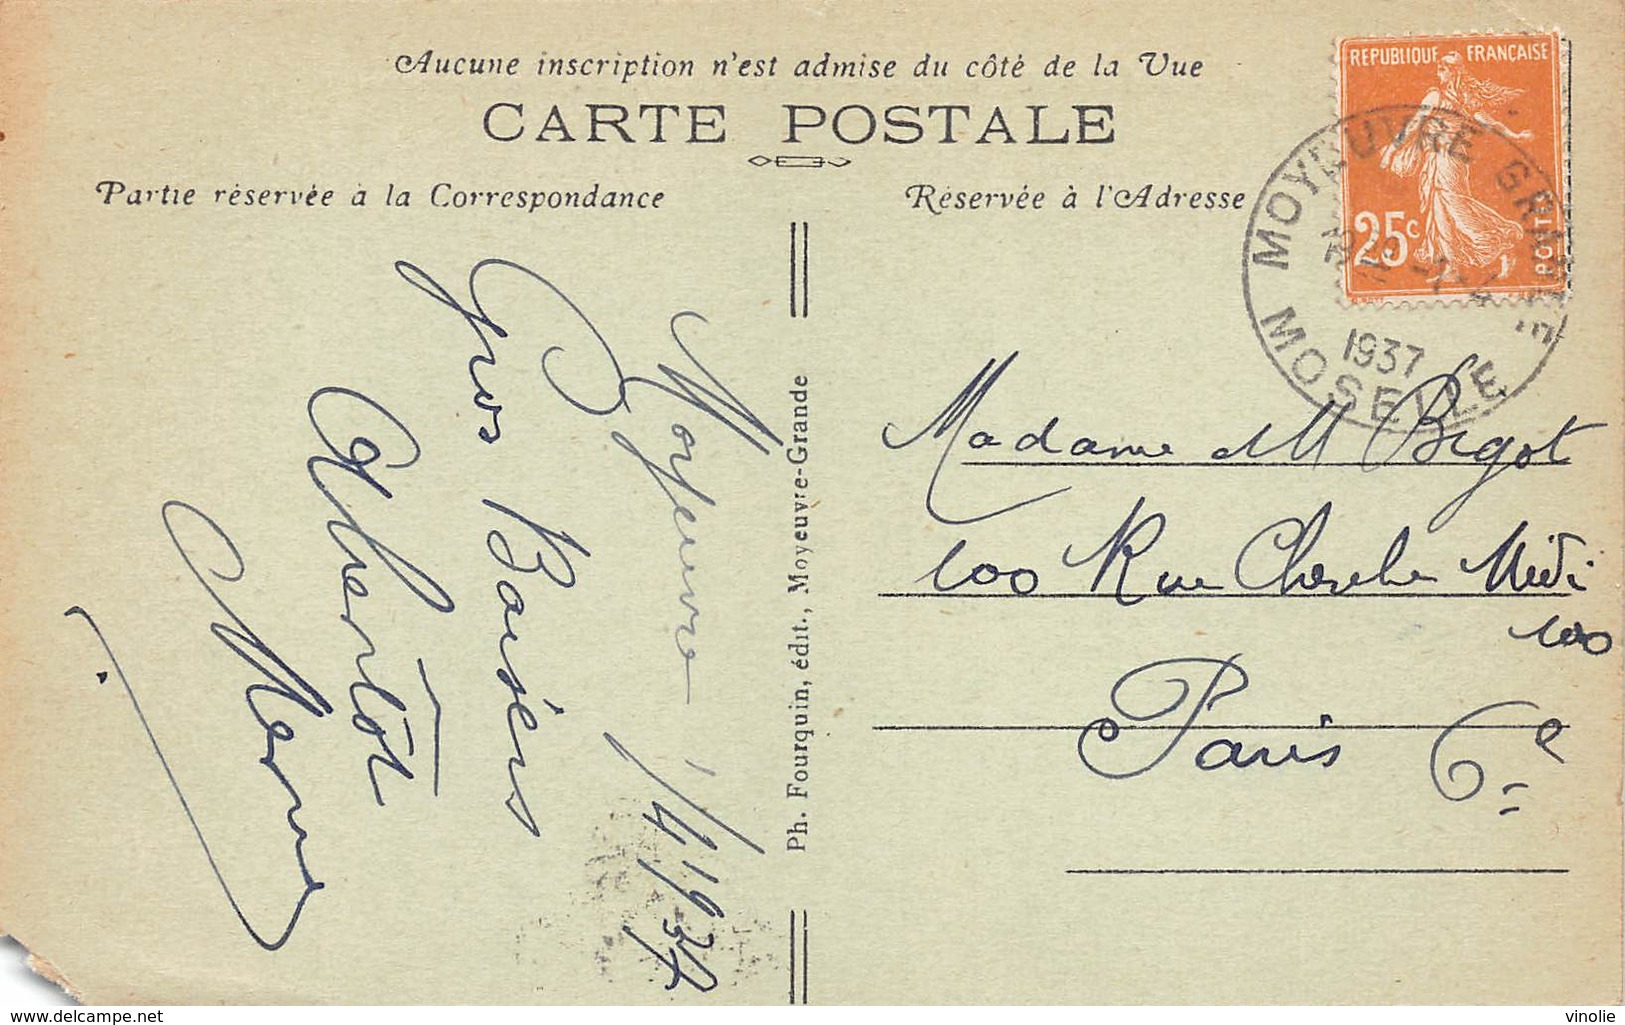 Aucune inscription n'est admise du côté de la Vue
CARTE POSTALE
Partie réservée à la Correspondance
Réservée à l'Adresse
REPUBLIQUE FRANÇAISE
25c
POSTES
MOYEUVRE GRANDE
1937
MOSELLE
Moyeuvre 1/4/1937
Gros Baisers
A bientôt
Ph. Fourquin, édit., Moyeuvre-Grande
Madame M Bigot
100 Rue Cherche Midi
100
Paris 6e
www.delcampe.net
vinolie